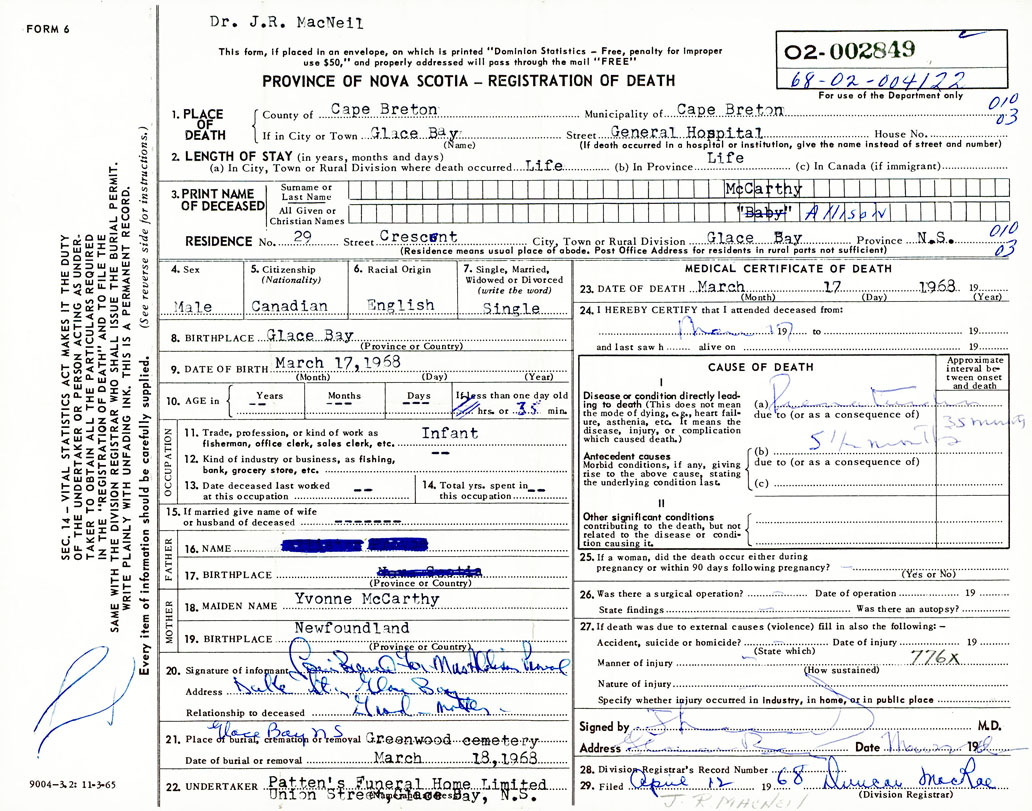 FORM 6
Dr. J.R. MacNeil
This form, if placed in an envelope, on which is printed "Dominion Statistics – Free, penalty for improper
use $50," and properly addressed will pass through the mail "FREE"
PROVINCE OF NOVA SCOTIA – REGISTRATION OF DEATH
02-002849
68-02-004122
For use of the Department only
010
03
1. PLACE OF DEATH
County of Cape Breton Municipality of Cape Breton
If in City or Town Glace Bay Street General Hospital House No.
(Name) (If death occurred in a hospital or institution, give the name instead of street and number)
2. LENGTH OF STAY (in years, months and days)
(a) In City, Town or Rural Division where death occurred Life (b) In Province Life (c) In Canada (if immigrant)
3. PRINT NAME OF DECEASED
Surname or Last Name McCarthy
All Given or Christian Names "Baby" Allison
RESIDENCE No. 29 Street Crescent City, Town or Rural Division Glace Bay Province N.S.
(Residence means usual place of abode. Post Office Address for residents in rural parts not sufficient)
010
03
4. Sex
Male
5. Citizenship
(Nationality)
Canadian
6. Racial Origin
English
7. Single, Married,
Widowed or Divorced
(write the word)
Single
8. BIRTHPLACE Glace Bay
(Province or Country)
9. DATE OF BIRTH March 17,1968
(Month) (Day) (Year)
10. AGE in Years -- Months --- Days --- If less than one day old
hrs. or 35 min.
OCCUPATION
11. Trade, profession, or kind of work as
fisherman, office clerk, sales clerk, etc. Infant
12. Kind of industry or business, as fishing,
bank, grocery store, etc. --
13. Date deceased last worked
at this occupation --
14. Total yrs. spent in
this occupation --
15. If married give name of wife
or husband of deceased -------
FATHER
16. NAME
17. BIRTHPLACE Nova Scotia
(Province or Country)
MOTHER
18. MAIDEN NAME Yvonne McCarthy
19. BIRTHPLACE Newfoundland
(Province or Country)
20. Signature of informant
Address Glace Bay
Relationship to deceased
21. Place of burial, cremation or removal Greenwood cemetery
Glace Bay NS
Date of burial or removal March 18,1968
22. UNDERTAKER Patten's Funeral Home Limited
Union Street, Glace Bay, N.S.
MEDICAL CERTIFICATE OF DEATH
23. DATE OF DEATH March 17 1968 19
(Month) (Day) (Year)
24. I HEREBY CERTIFY that I attended deceased from:
to 19
and last saw h alive on 19
CAUSE OF DEATH
Approximate interval between onset and death
I
Disease or condition directly leading to death (This does not mean the mode of dying, e.g., heart failure, asthenia, etc. It means the disease, injury, or complication which caused death.)
(a)
due to (or as a consequence of)
35 minutes
5 1/2 months
Antecedent causes
Morbid conditions, if any, giving rise to the above cause, stating the underlying condition last.
(b)
due to (or as a consequence of)
(c)
II
Other significant conditions
contributing to the death, but not related to the disease or condition causing it.
25. If a woman, did the death occur either during
pregnancy or within 90 days following pregnancy?
(Yes or No)
26. Was there a surgical operation? Date of operation 19
State findings Was there an autopsy?
27. If death was due to external causes (violence) fill in also the following: –
Accident, suicide or homicide? Date of injury 19
(State which)
Manner of injury 776X
(How sustained)
Nature of injury
Specify whether injury occurred in Industry, in home, or in public place
Signed by M.D.
Address Date 19
28. Division Registrar's Record Number
29. Filed April 12 1968 Duncan MacRae
(Division Registrar)
J R MacNeil
SEC. 14 – VITAL STATISTICS ACT MAKES IT THE DUTY
OF THE UNDERTAKER OR PERSON ACTING AS UNDER-
TAKER TO OBTAIN ALL THE PARTICULARS REQUIRED
IN THE "REGISTRATION OF DEATH" AND TO FILE THE
SAME WITH THE DIVISION REGISTRAR WHO SHALL ISSUE THE BURIAL PERMIT.
WRITE PLAINLY WITH UNFADING INK. THIS IS A PERMANENT RECORD.
Every item of information should be carefully supplied. (See reverse side for instructions.)
9004-3.2: 11-3-65